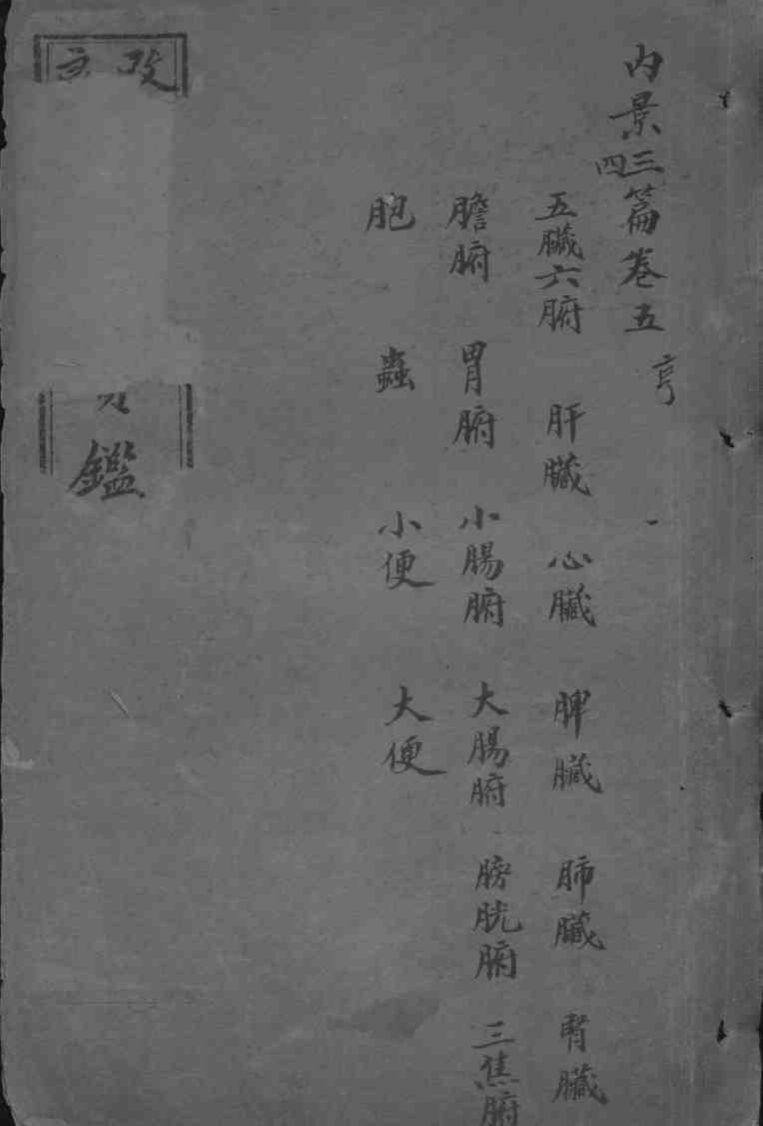 内景三四篇卷五 亨
五臟六腑 肝臟 心臟 脾臟 肺臟 腎臟
膽腑 胃腑 小腸腑 大腸腑 膀胱腑 三焦腑
胞 蟲 小便 大便
鑑